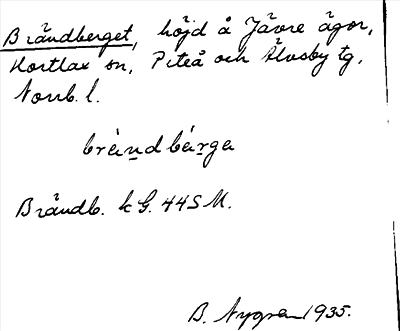 Brändberget, höjd å Jävre ägor,
Hortlax sn, Piteå och Älvsby tg,
Norrb. l.
brä̀ndbä́rge
Brändb. k G. 44S M.
B. Nygren 1935.